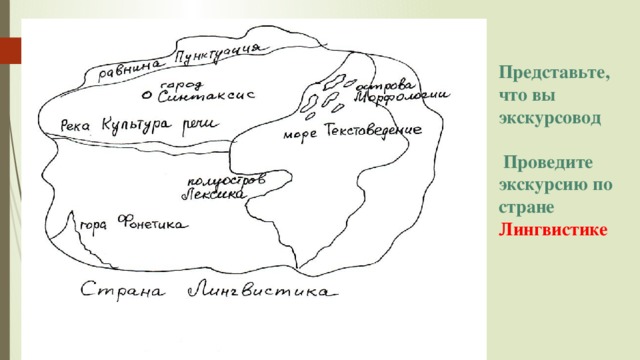 равнина Пунктуация
город
Синтаксис
острова
Морфологии
Река Культура речи
море Текстоведение
полуостров
Лексика
гора Фонетика
Страна Лингвистика
Представьте,
что вы
экскурсовод
Проведите
экскурсию по
стране
Лингвистике